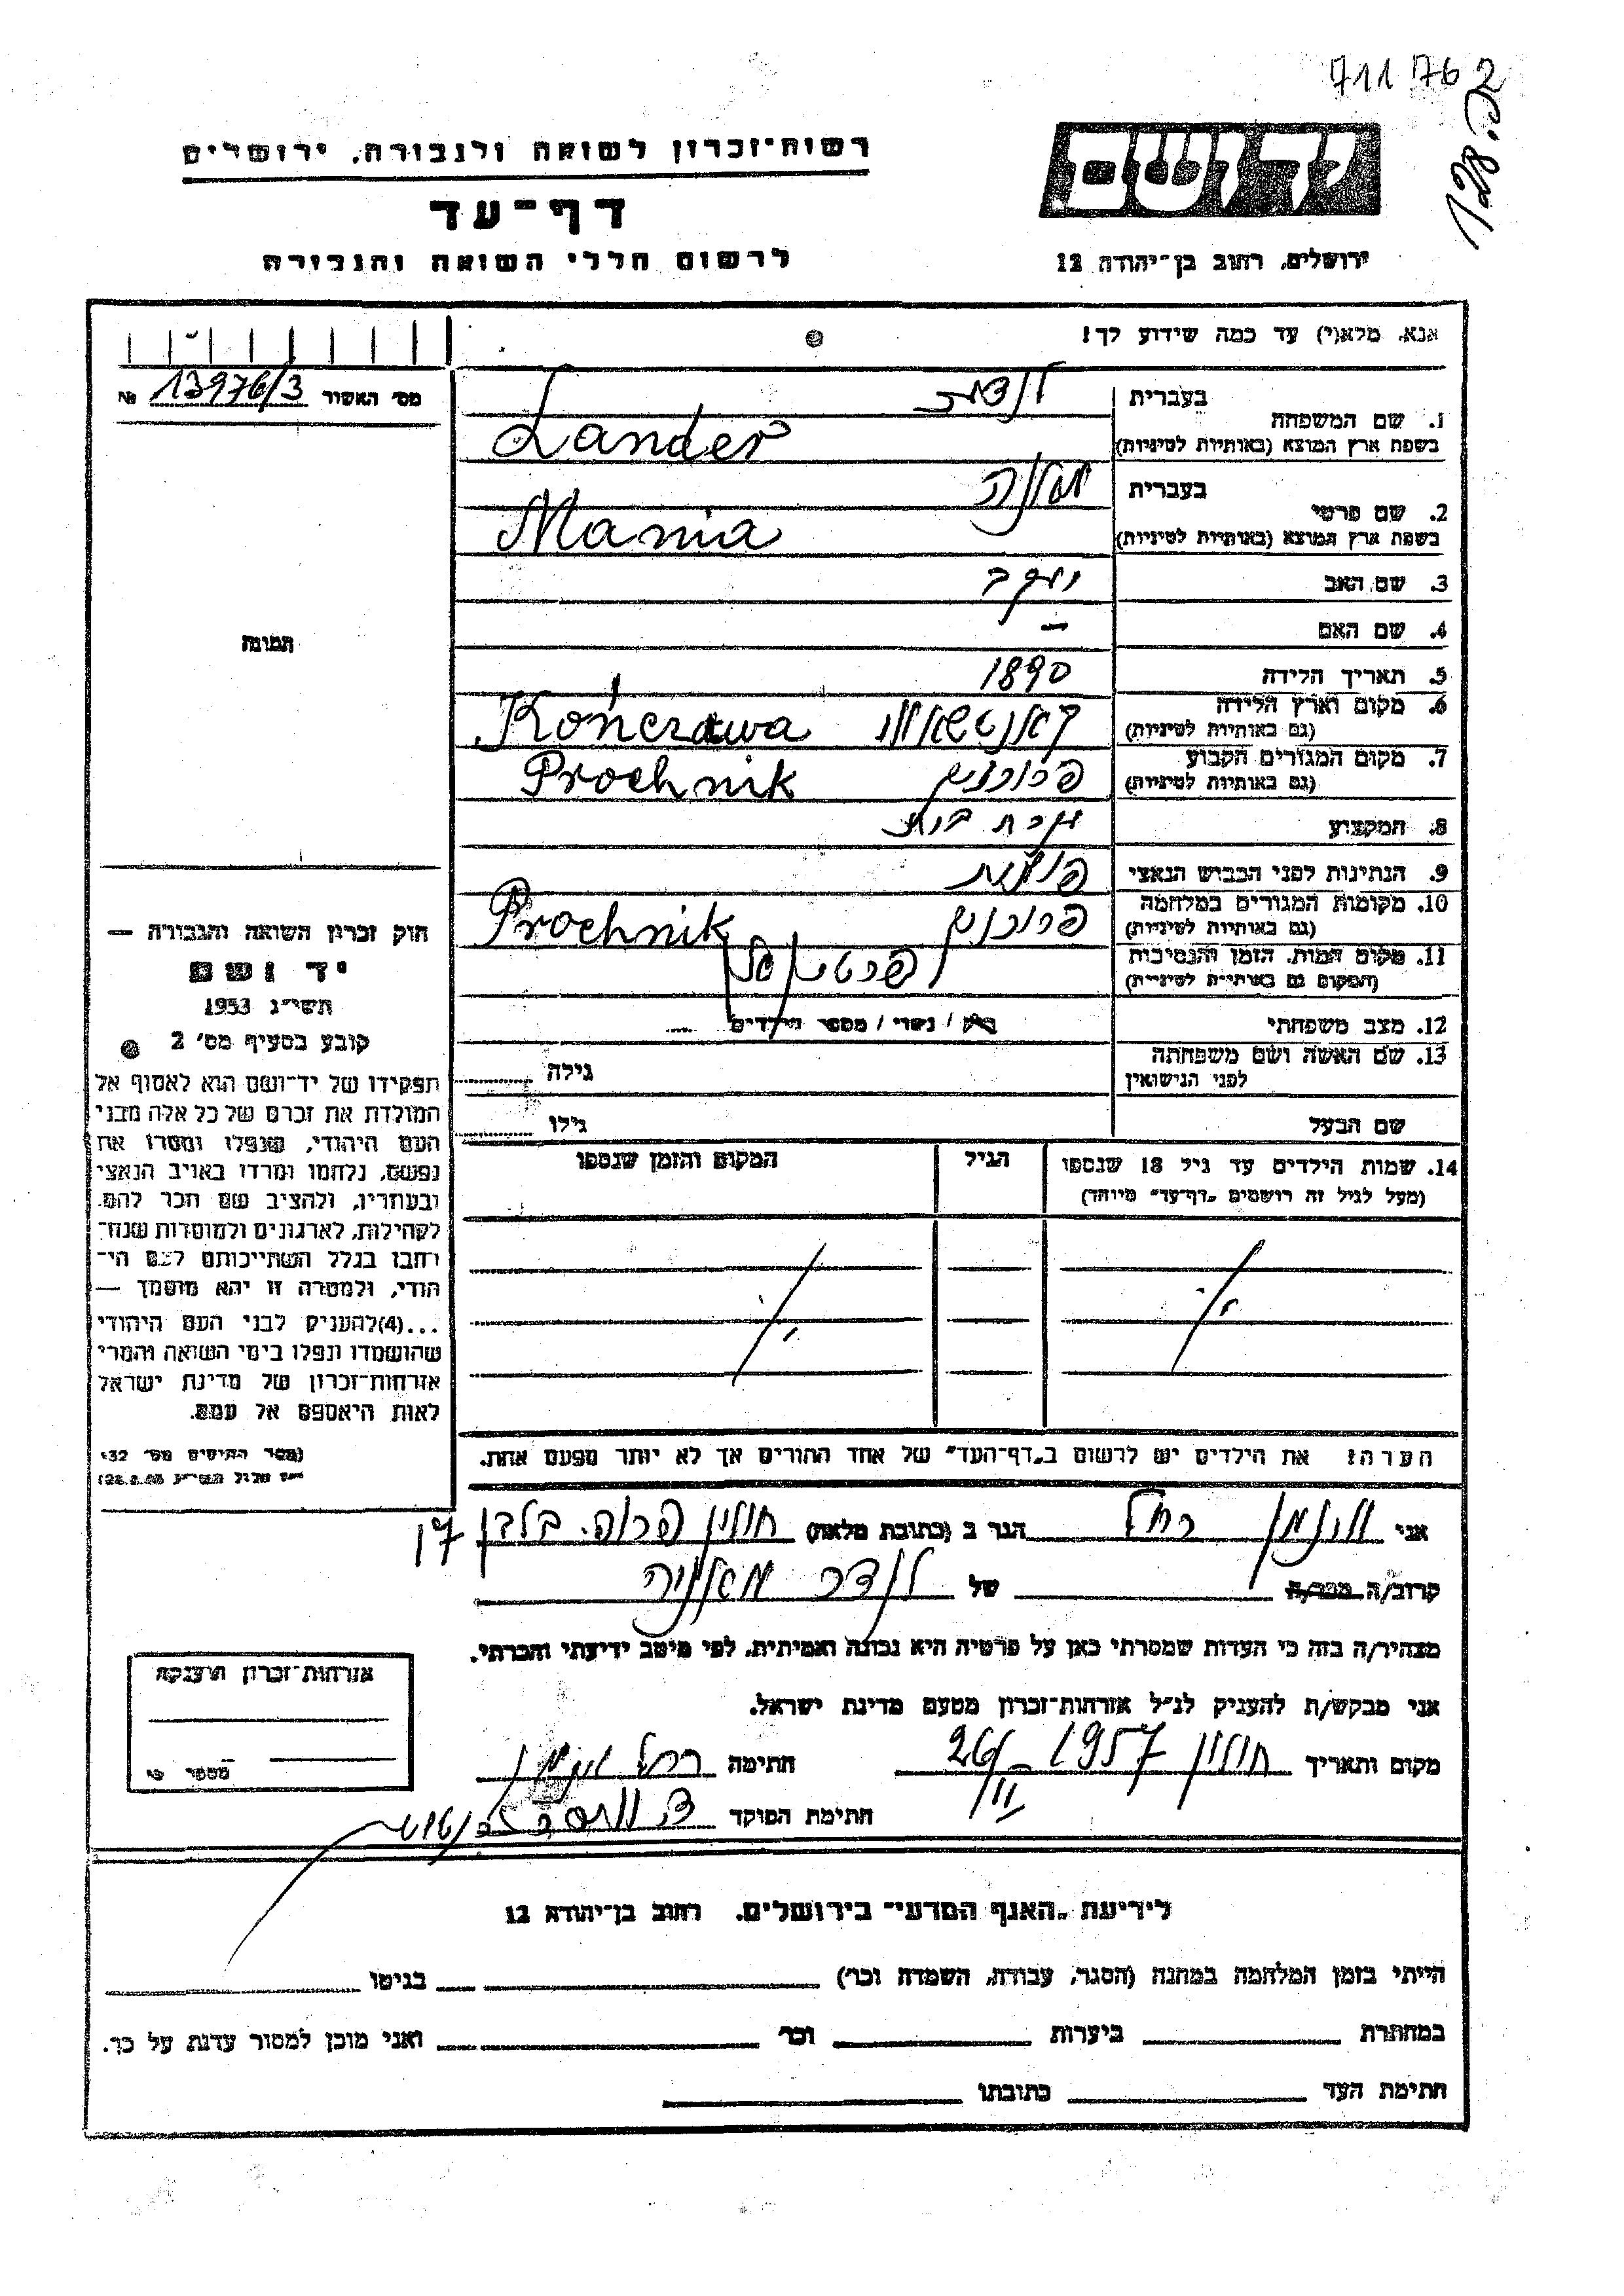 711 762
128.ב
רשות־זכרון לשואה ולגבורה, ירושלים
דף־עד
לרשום חללי השואה והגבורה
יד ושם
ירושלים, רחוב בן־יהודה 12
אנא, מלא(י) עד כמה שידוע לך!
מס׳ האשור № 13976/3
1. שם המשפחה
בעברית לנדר
בשפת ארץ המוצא (באותיות לטיניות) Lander
2. שם פרטי
בעברית מאניה
בשפת ארץ המוצא (באותיות לטיניות) Mania
3. שם האב יעקב
4. שם האם –
5. תאריך הלידה 1890
6. מקום וארץ הלידה (גם באותיות לטיניות) Kończawa
7. מקום המגורים הקבוע (גם באותיות לטיניות) פרוכניק Prochnik
8. המקצוע עקרת בית
9. הנתינות לפני הכבוש הנאצי פולנית
10. מקומות המגורים במלחמה (גם באותיות לטיניות) פרוכניק Prochnik
11. מקום המות, הזמן והנסיבות (המקום גם באותיות לטיניות)
12. מצב משפחתי רווק / נשוי / מספר הילדים
13. שם האשה ושם משפחתה לפני הנישואין
גילה
שם הבעל
גילו
14. שמות הילדים עד גיל 18 שנספו (מעל לגיל זה רושמים „דף־עד״ מיוחד)
הגיל
המקום והזמן שנספו
הערה: את הילדים יש לרשום ב„דף־העד״ של אחד ההורים אך לא יותר מפעם אחת.
תמונה
חוק זכרון השואה והגבורה —
יד ושם
תשי״ג 1953
קובע בסעיף מס׳ 2
תפקידו של יד־ושם הוא לאסוף אל
המולדת את זכרם של כל אלה מבני
העם היהודי, שנפלו ומסרו את
נפשם, נלחמו ומרדו באויב הנאצי
ובעוזריו, ולהציב שם וזכר להם,
לקהילות, לארגונים ולמוסדות שנח־
רבו בגלל השתייכותם לעם הי־
הודי, ולמטרה זו יהא מוסמך —
...(4)להעניק לבני העם היהודי
שהושמדו ונפלו בימי השואה והמרי
אזרחות־זכרון של מדינת ישראל
לאות היאספם אל עמם.
(ספר החוקים מס׳ 132
אני רחל הגר ב (כתובת מלאה) חולון 17
קרוב/ה מכר/ה של לנדר מאניה
מצהיר/ה בזה כי העדות שמסרתי כאן על פרטיה היא נכונה ואמיתית, לפי מיטב ידיעתי והכרתי.
אני מבקש/ת להעניק לנ״ל אזרחות־זכרון מטעם מדינת ישראל.
מקום ותאריך חולון 26/II 1957 חתימה רחל
חתימת הפוקד
אזרחות־זכרון הוענקה
מספר
לידיעת „האגף המדעי״ בירושלים, רחוב בן־יהודה 12
הייתי בזמן המלחמה במחנה (הסגר, עבודה, השמדה וכו׳) בגיטו
במחתרת ביערות וכו׳ ואני מוכן למסור עדות על כך.
חתימת העד כתובתו